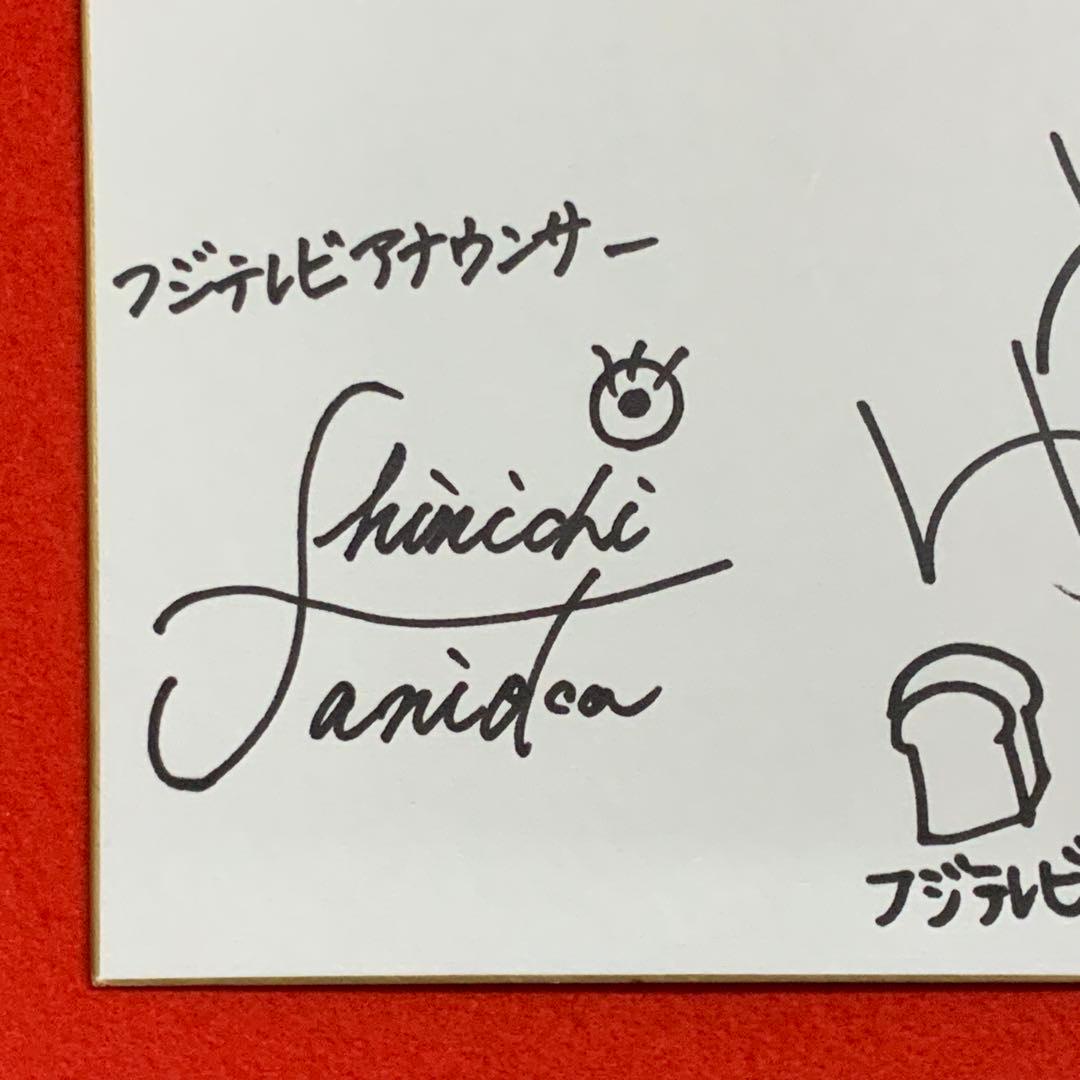 フジテレビアナウンサー
Shinichi
Tanioka
フジテレビ